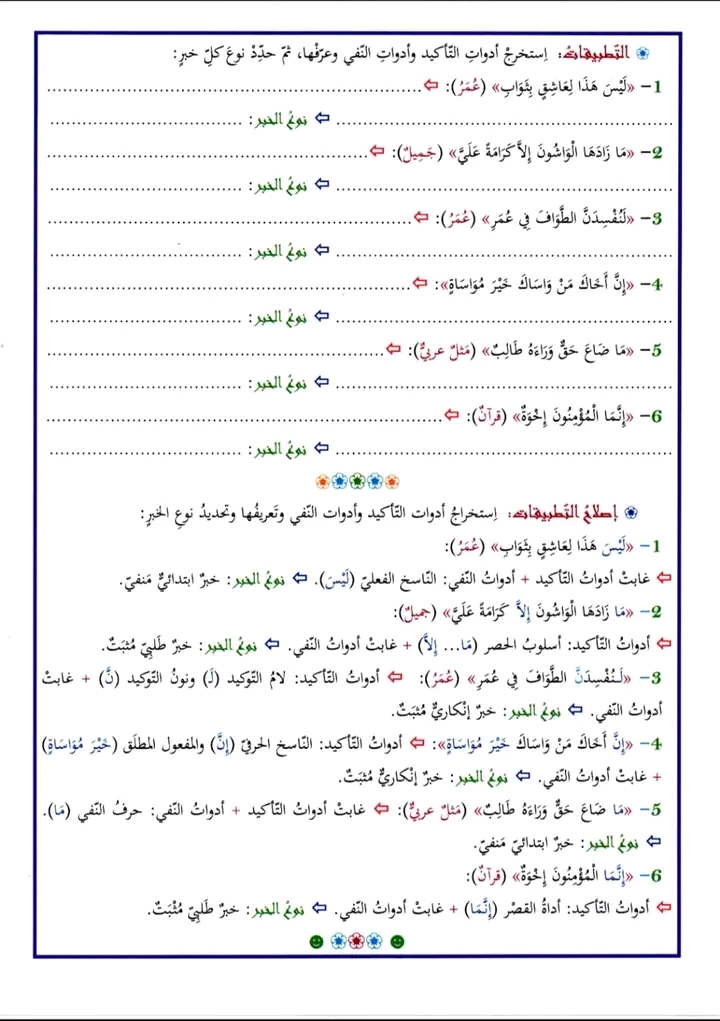 التّطبيقاتُ: اِستخرجْ أدواتِ التّأكيد وأدواتِ النّفي وعرّفْها، ثمّ حدّدْ نوعَ كلِّ خبرٍ:
1- «لَيْسَ هَذَا لِعَاشِقٍ بِثَوَابِ» (عُمَرُ): ⇦ ......................................................
...................................................... ⇦ نوعُ الخبر: ..............................
2- «مَا زَادَهَا الْوَاشُونَ إِلاَّ كَرَامَةً عَلَيَّ» (جَمِيلٌ): ⇦ ......................................................
...................................................... ⇦ نوعُ الخبر: ..............................
3- «لَنُفْسِدَنَّ الطَّوَافَ فِي عُمَرِ» (عُمَرُ): ⇦ ......................................................
...................................................... ⇦ نوعُ الخبر: ..............................
4- «إِنَّ أَخَاكَ مَنْ وَاسَاكَ خَيْرَ مُوَاسَاةٍ»: ⇦ ......................................................
...................................................... ⇦ نوعُ الخبر: ..............................
5- «مَا ضَاعَ حَقٌّ وَرَاءَهُ طَالِبٌ» (مَثلٌ عربيٌّ): ⇦ ......................................................
...................................................... ⇦ نوعُ الخبر: ..............................
6- «إِنَّمَا الْمُؤْمِنُونَ إِخْوَةٌ» (قرآنٌ): ⇦ ......................................................
...................................................... ⇦ نوعُ الخبر: ..............................
إصلاحُ التّطبيقات: اِستخراجُ أدوات التّأكيد وأدوات النّفي وتَعريفُها وتحديدُ نوعِ الخبرِ:
1- «لَيْسَ هَذَا لِعَاشِقٍ بِثَوَابِ» (عُمَرُ):
⇦ غابتْ أدواتُ التّأكيد + أدواتُ النّفي: النّاسخ الفعليّ (لَيْسَ). ⇦ نوعُ الخبر: خبرٌ ابتدائيٌّ مَنفيّ.
2- «مَا زَادَهَا الْوَاشُونَ إِلاَّ كَرَامَةً عَلَيَّ» (جميلٌ):
⇦ أدواتُ التّأكيد: أسلوبُ الحصر (مَا... إِلاَّ) + غابتْ أدواتُ النّفي. ⇦ نوعُ الخبر: خبرٌ طَلبِيّ مُثبَتٌ.
3- «لَنُفْسِدَنَّ الطَّوَافَ فِي عُمَرِ» (عُمَرُ): ⇦ أدواتُ التّأكيد: لامُ التّوكيد (لَ) ونونُ التّوكيد (نَّ) + غابتْ
أدواتُ النّفي. ⇦ نوعُ الخبر: خبرٌ إنْكاريٌّ مُثبَتٌ.
4- «إِنَّ أَخَاكَ مَنْ وَاسَاكَ خَيْرَ مُوَاسَاةٍ»: ⇦ أدواتُ التّأكيد: النّاسخ الحرفيّ (إِنَّ) والمفعول المطلَق (خَيْرَ مُوَاسَاةٍ)
+ غابتْ أدواتُ النّفي. ⇦ نوعُ الخبر: خبرٌ إنْكاريٌّ مُثبَتٌ.
5- «مَا ضَاعَ حَقٌّ وَرَاءَهُ طَالِبٌ» (مَثلٌ عربيٌّ): ⇦ غابتْ أدواتُ التّأكيد + أدواتُ النّفي: حرفُ النّفي (مَا).
⇦ نوعُ الخبر: خبرٌ ابتدائيّ مَنفيّ.
6- «إِنَّمَا الْمُؤْمِنُونَ إِخْوَةٌ» (قرآنٌ):
⇦ أدواتُ التّأكيد: أداةُ القصْر (إِنَّمَا) + غابتْ أدواتُ النّفي. ⇦ نوعُ الخبر: خبرٌ طَلبِيّ مُثْبَتٌ.